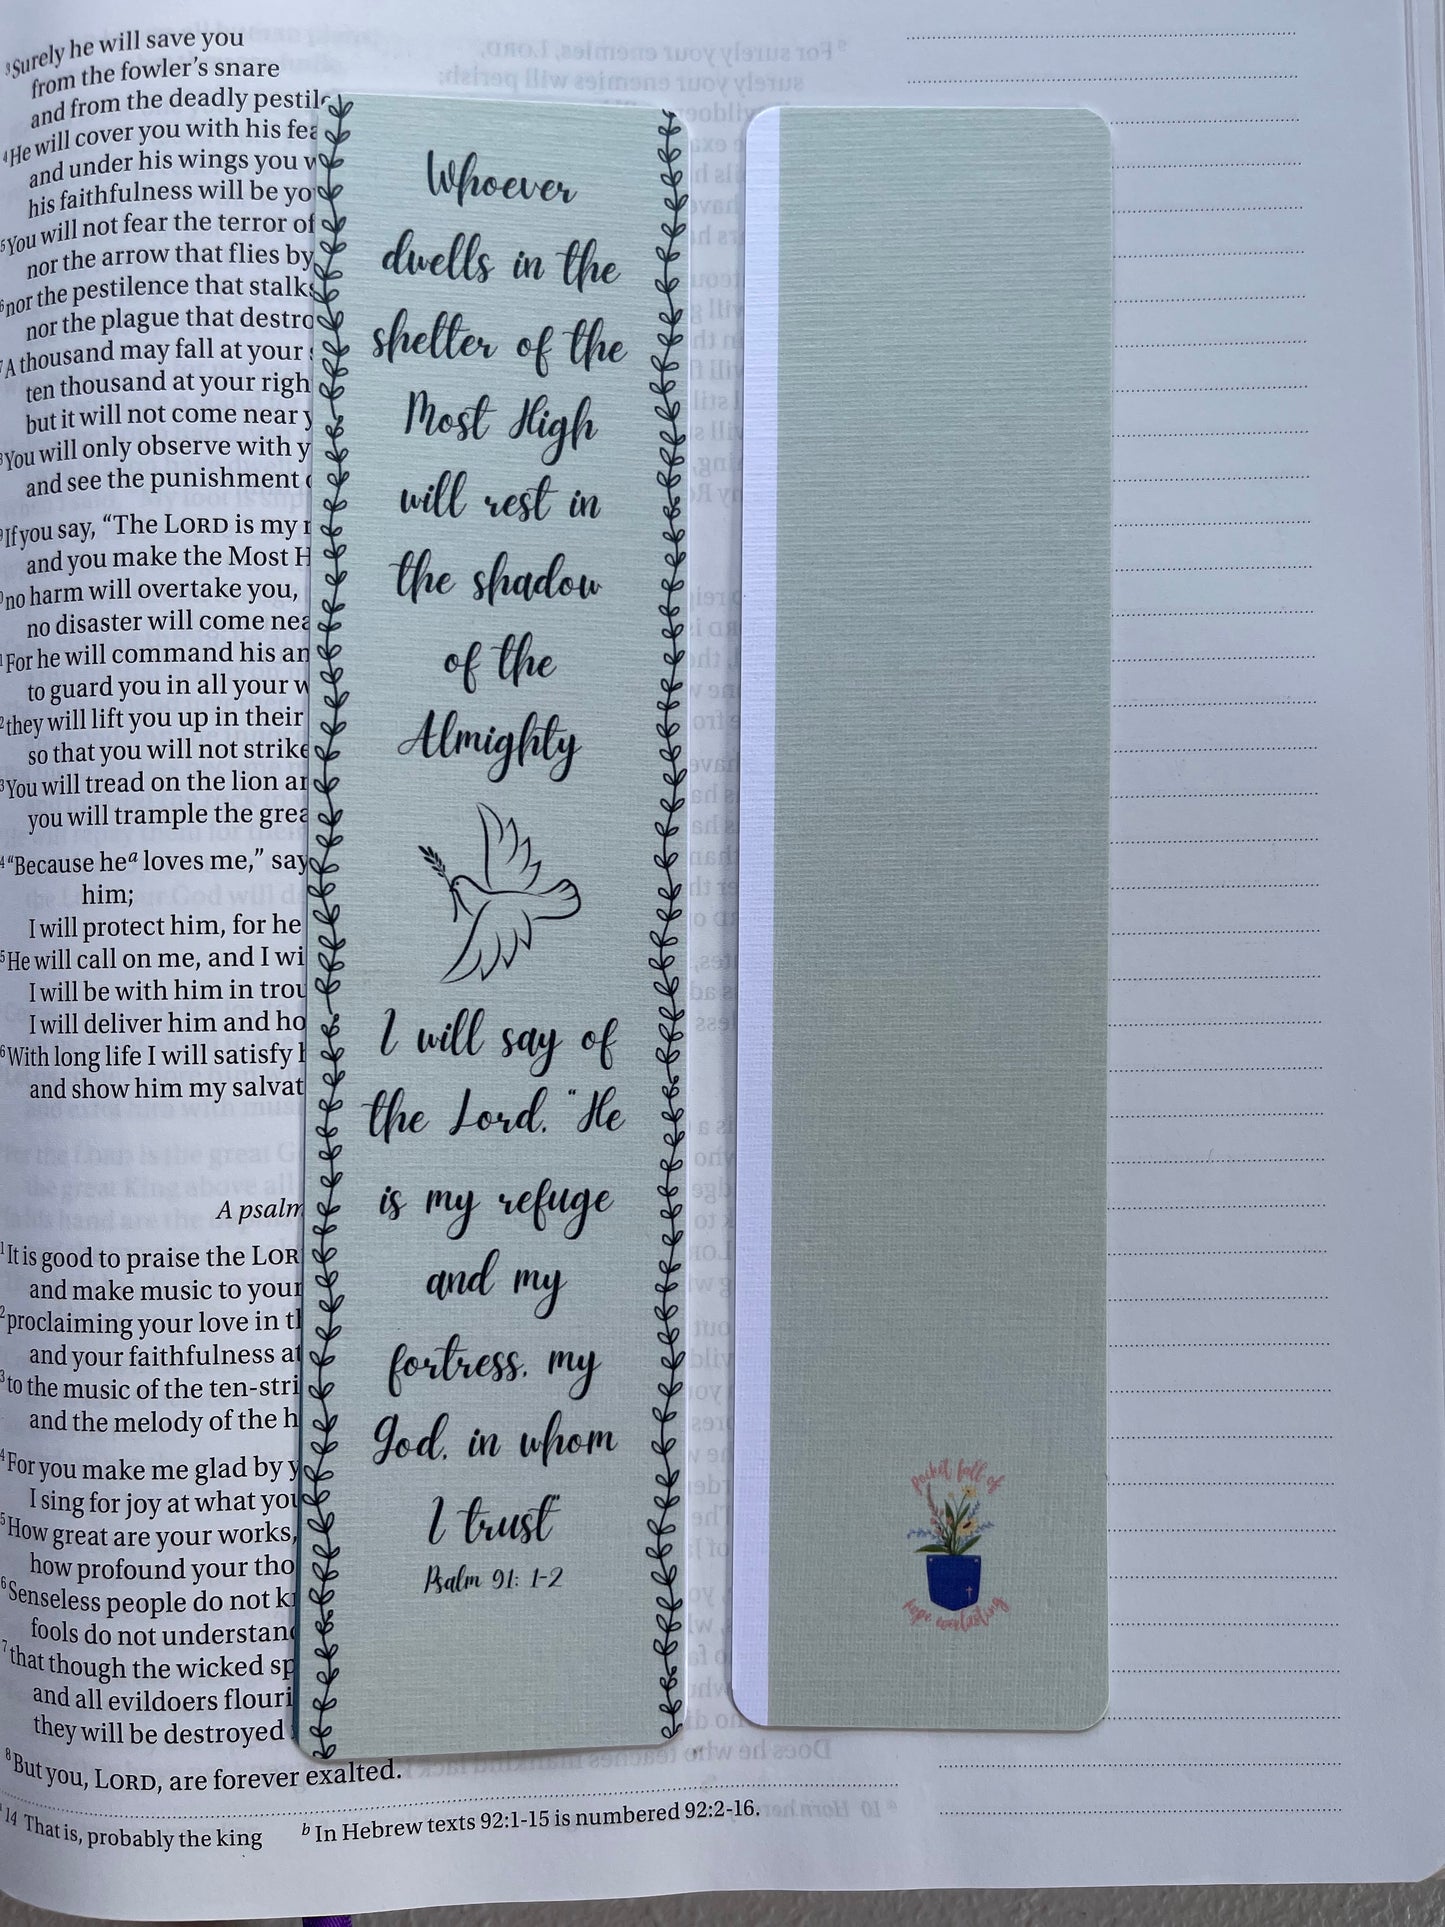 ³Surely he will save you
from the fowler's snare
and from the deadly
⁴He will cover you with his
and under his wings you
his faithfulness will be
⁵You will not fear the terror of
nor the arrow that flies by
⁶nor the pestilence that
nor the plague that
A thousand may fall at your
ten thousand at your
but it will not come near
You will only observe with
and see the punishment
If you say, “The LORD is my
and you make the Most
no harm will overtake you,
no disaster will come
For he will command his
to guard you in all your
they will lift you up in their
so that you will not
You will tread on the lion
you will trample the
“Because heᵃ loves me,”
him;
I will protect him, for he
He will call on me, and I
I will be with him in
I will deliver him and
With long life I will satisfy
and show him my
A psalm
¹It is good to praise the
and make music to your
²proclaiming your love in
and your faithfulness
³to the music of the
and the melody of the
⁴For you make me glad by
I sing for joy at what
⁵How great are your works,
how profound your
⁶Senseless people do not
fools do not
⁷that though the wicked
and all evildoers
they will be destroyed
⁸But you, LORD, are forever exalted.
14 That is, probably the king
b In Hebrew texts 92:1-15 is numbered 92:2-16.
Whoever
dwells in the
shelter of the
Most High
will rest in
the shadow
of the
Almighty
I will say of
the Lord, "He
is my refuge
and my
fortress, my
God, in whom
I trust"
Psalm 91: 1-2
pocket full of
hope everlasting